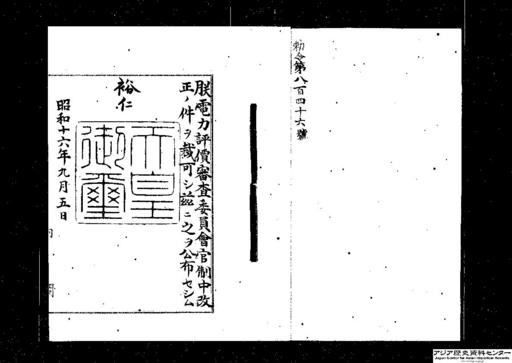 勅令第八百四十六號
朕電力評價審査委員會官制中改
正ノ件ヲ裁可シ茲ニ之ヲ公布セシム
裕仁
天皇
御璽
昭和十六年九月五日
内閣
アジア歴史資料センター
Japan Center for Asian Historical Records